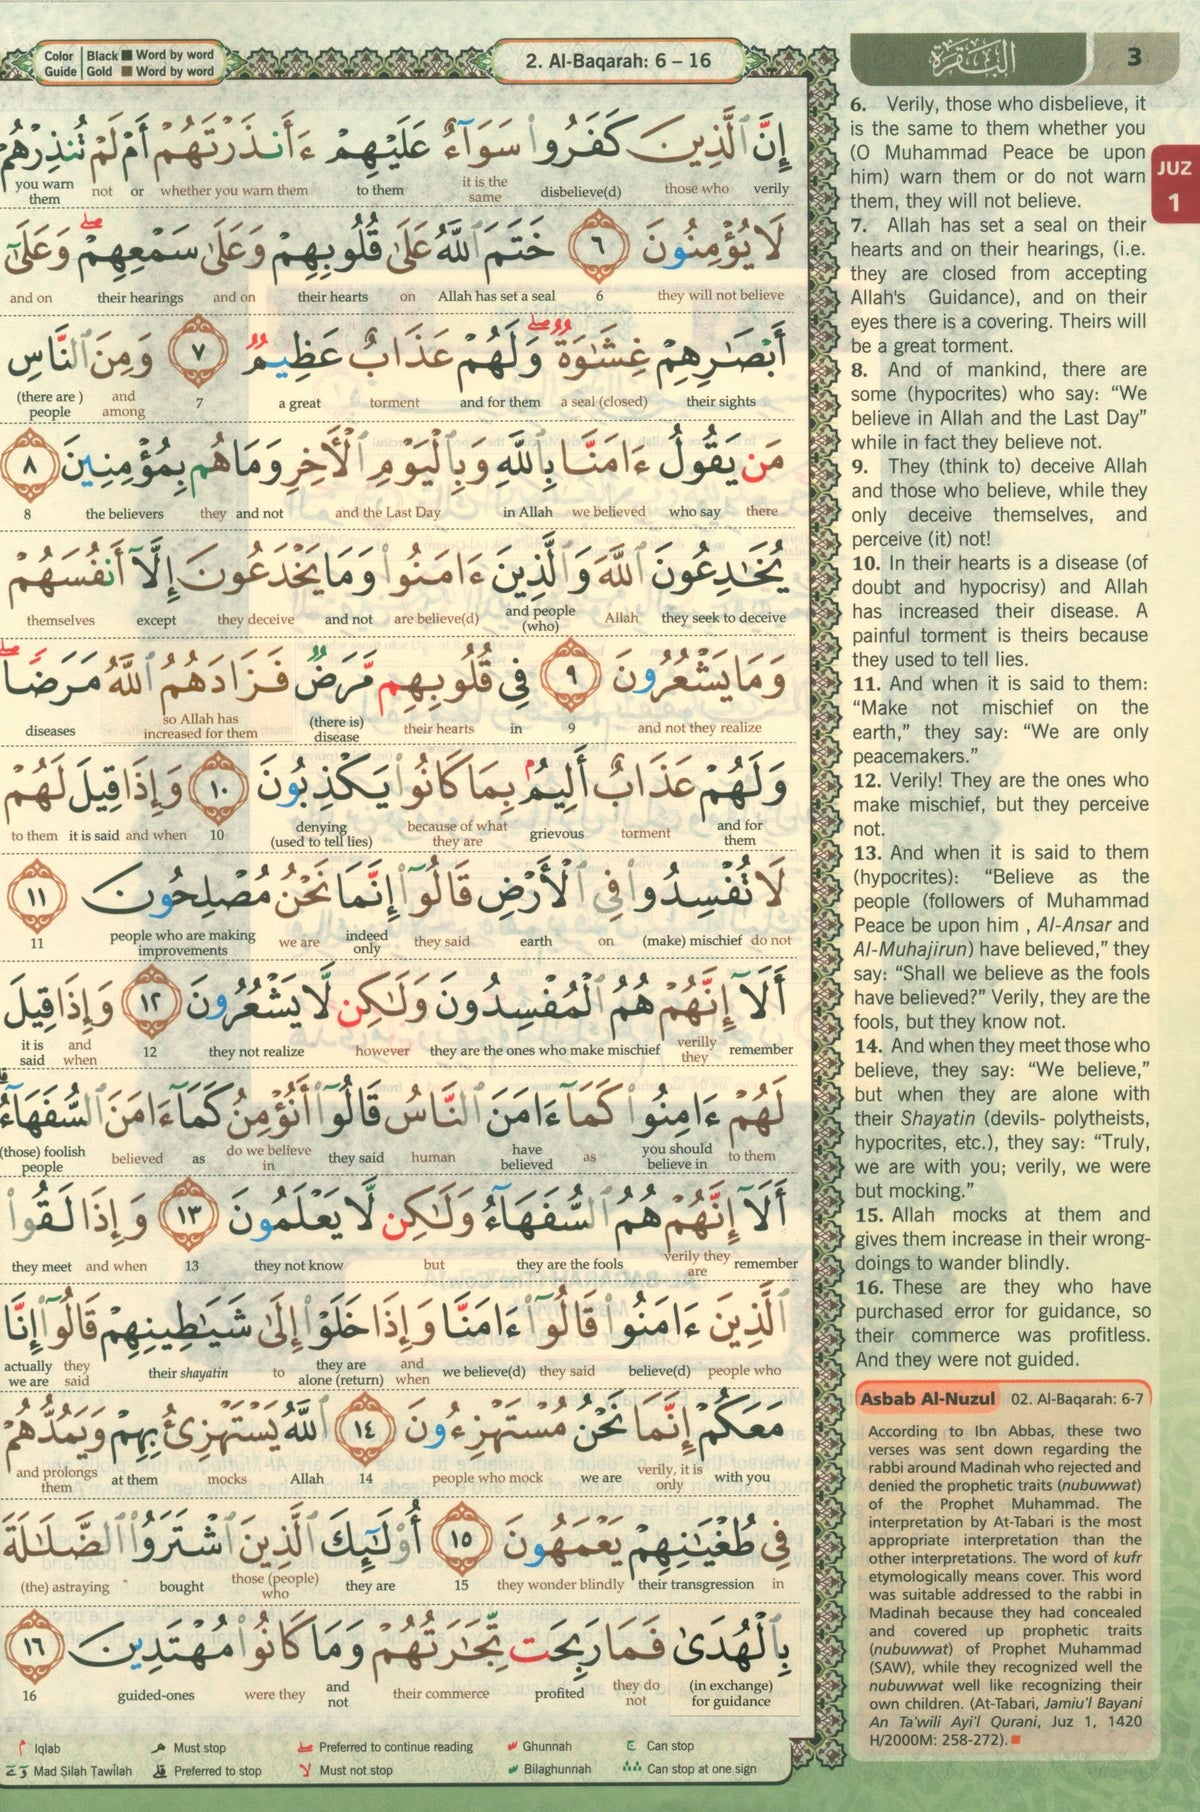 Color Guide
Black ■ Word by word
Gold ■ Word by word
2. Al-Baqarah: 6 – 16
البقرة
3
JUZ
1
إِنَّ ٱلَّذِينَ كَفَرُوا۟ سَوَآءٌ عَلَيْهِمْ ءَأَنذَرْتَهُمْ أَمْ لَمْ تُنذِرْهُمْ
verily those who disbelieve(d) it is the same to them whether you warn them or not you warn them
لَا يُؤْمِنُونَ ٦ خَتَمَ ٱللَّهُ عَلَىٰ قُلُوبِهِمْ وَعَلَىٰ سَمْعِهِمْ ۖ وَعَلَىٰٓ
they will not believe 6 Allah has set a seal on their hearts and on their hearings and on
أَبْصَٰرِهِمْ غِشَٰوَةٌ ۖ وَلَهُمْ عَذَابٌ عَظِيمٌ ٧ وَمِنَ ٱلنَّاسِ
their sights a seal (closed) and for them torment a great 7 and among (there are ) people
مَن يَقُولُ ءَامَنَّا بِٱللَّهِ وَبِٱلْيَوْمِ ٱلْأَخِرِ وَمَا هُم بِمُؤْمِنِينَ ٨
there who say we believed in Allah and the Last Day and not they the believers 8
يُخَٰدِعُونَ ٱللَّهَ وَٱلَّذِينَ ءَامَنُوا۟ وَمَا يَخْدَعُونَ إِلَّآ أَنفُسَهُمْ
they seek to deceive Allah and people (who) are believe(d) and not they deceive except themselves
وَمَا يَشْعُرُونَ ٩ فِى قُلُوبِهِم مَّرَضٌ فَزَادَهُمُ ٱللَّهُ مَرَضًا ۖ
and not they realize 9 in their hearts (there is) disease so Allah has increased for them diseases
وَلَهُمْ عَذَابٌ أَلِيمٌۢ بِمَا كَانُوا۟ يَكْذِبُونَ ١٠ وَإِذَا قِيلَ لَهُمْ
and for them torment grievous because of what they are denying (used to tell lies) 10 and when it is said to them
لَا تُفْسِدُوا۟ فِى ٱلْأَرْضِ قَالُوٓا۟ إِنَّمَا نَحْنُ مُصْلِحُونَ ١١
do not (make) mischief on earth they said indeed only we are people who are making improvements 11
أَلَآ إِنَّهُمْ هُمُ ٱلْمُفْسِدُونَ وَلَٰكِن لَّا يَشْعُرُونَ ١٢ وَإِذَا قِيلَ
remember verilly they they are the ones who make mischief however they not realize 12 and when it is said
لَهُمْ ءَامِنُوا۟ كَمَآ ءَامَنَ ٱلنَّاسُ قَالُوٓا۟ أَنُؤْمِنُ كَمَآ ءَامَنَ ٱلسُّفَهَآءُ ۗ
to them you should believe in as have believed human they said do we believe in as believed (those) foolish people
أَلَآ إِنَّهُمْ هُمُ ٱلسُّفَهَآءُ وَلَٰكِن لَّا يَعْلَمُونَ ١٣ وَإِذَا لَقُوا۟
remember verily they are they are the fools but they not know 13 and when they meet
ٱلَّذِينَ ءَامَنُوا۟ قَالُوٓا۟ ءَامَنَّا وَإِذَا خَلَوْا۟ إِلَىٰ شَيَٰطِينِهِمْ قَالُوٓا۟ إِنَّا
people who believe(d) they said we believe(d) and when they are alone (return) to their shayatin they said actually we are
مَعَكُمْ إِنَّمَا نَحْنُ مُسْتَهْزِءُونَ ١٤ ٱللَّهُ يَسْتَهْزِئُ بِهِمْ وَيَمُدُّهُمْ
with you verily, it is only we are people who mock 14 Allah mocks at them and prolongs them
فِى طُغْيَٰنِهِمْ يَعْمَهُونَ ١٥ أُو۟لَٰٓئِكَ ٱلَّذِينَ ٱشْتَرَوُا۟ ٱلضَّلَٰلَةَ
in their transgression they wonder blindly 15 they are those (people) who bought (the) astraying
بِٱلْهُدَىٰ فَمَا رَبِحَت تِّجَٰرَتُهُمْ وَمَا كَانُوا۟ مُهْتَدِينَ ١٦
(in exchange) for guidance they do not profited their commerce and not were they guided-ones 16
Iqlab Must stop Preferred to continue reading Ghunnah Can stop
Mad Ṣilah Ṭawīlah Preferred to stop Must not stop Bilaghunnah Can stop at one sign
6. Verily, those who disbelieve, it
is the same to them whether you
(O Muhammad Peace be upon
him) warn them or do not warn
them, they will not believe.
7. Allah has set a seal on their
hearts and on their hearings, (i.e.
they are closed from accepting
Allah's Guidance), and on their
eyes there is a covering. Theirs will
be a great torment.
8. And of mankind, there are
some (hypocrites) who say: “We
believe in Allah and the Last Day”
while in fact they believe not.
9. They (think to) deceive Allah
and those who believe, while they
only deceive themselves, and
perceive (it) not!
10. In their hearts is a disease (of
doubt and hypocrisy) and Allah
has increased their disease. A
painful torment is theirs because
they used to tell lies.
11. And when it is said to them:
“Make not mischief on the
earth,” they say: “We are only
peacemakers.”
12. Verily! They are the ones who
make mischief, but they perceive
not.
13. And when it is said to them
(hypocrites): “Believe as the
people (followers of Muhammad
Peace be upon him , Al-Ansar and
Al-Muhajirun) have believed,” they
say: “Shall we believe as the fools
have believed?” Verily, they are the
fools, but they know not.
14. And when they meet those who
believe, they say: “We believe,”
but when they are alone with
their Shayatin (devils- polytheists,
hypocrites, etc.), they say: “Truly,
we are with you; verily, we were
but mocking.”
15. Allah mocks at them and
gives them increase in their wrong-
doings to wander blindly.
16. These are they who have
purchased error for guidance, so
their commerce was profitless.
And they were not guided.
Asbab Al-Nuzul 02. Al-Baqarah: 6-7
According to Ibn Abbas, these two
verses was sent down regarding the
rabbi around Madinah who rejected and
denied the prophetic traits (nubuwwat)
of the Prophet Muhammad. The
interpretation by At-Tabari is the most
appropriate interpretation than the
other interpretations. The word of kufr
etymologically means cover. This word
was suitable addressed to the rabbi in
Madinah because they had concealed
and covered up prophetic traits
(nubuwwat) of Prophet Muhammad
(SAW), while they recognized well the
nubuwwat well like recognizing their
own children. (At-Tabari, Jamiu'l Bayani
An Ta'wili Ayi'l Qurani, Juz 1, 1420
H/2000M: 258-272).